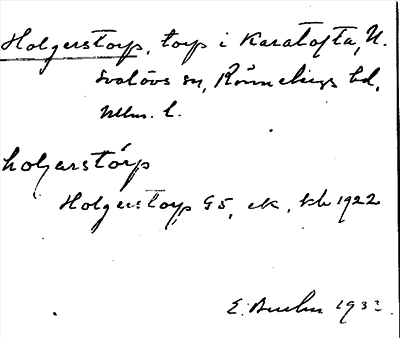 Holgerstorp, torp i Karatofta, N.
Svalövs sn, Rönnebergs hd,
Mlm. l.
holgerstórp
Holgerstorp G5, ek, kb 1922
E. 193